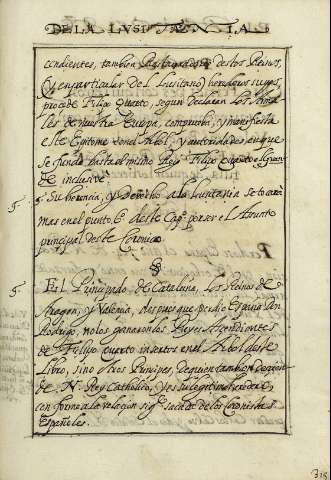 DE LA LVSITANIA.
cendientes, tambien Restauradores destos Reinos,
(y en particular del Lusitano) herederos suyos,
procede Filipo Quarto, segun declaran los Anna-
les de nuestra Europa, comprueba, y manifiesta
este Epitome con el Arbol, y autoridades en que
se funda hasta el mismo Rey Filipo quarto el gran-
de inclusive;
5. Su herencia, y Derecho a la Lusitania se toca
mas en el punto 6 deste Cap. por ser el Asunto
principal deste Coronica
§
5. En el Principado de Cataluna, los Reinos de
Aragon, y Valencia, despues que perdio España Don
Rodrigo, no los ganaron los Reyes Ascendientes
de Felipo quarto insertos en el Arbol deste
Libro, sino otros Principes, de quien tambien
de N. Rey Catholico, y es su legitimo heredero,
conforme a la relacion sig.te sacada de los Coronistas
Españoles.
315